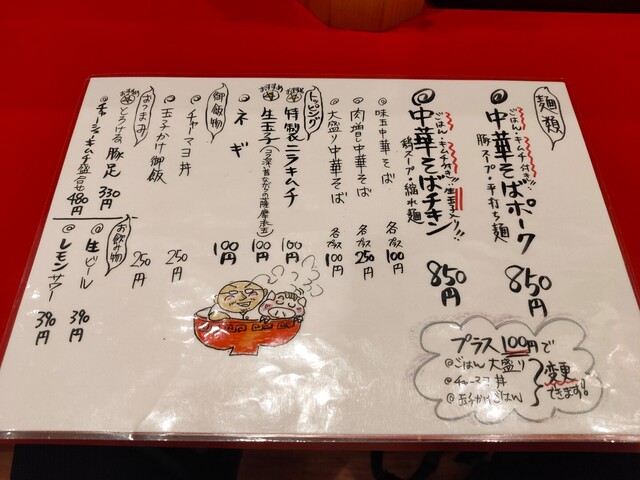 麺類
ごはん・キムチ付き!!
@中華そばポーク
豚スープ・平打ち麺
850円
ごはん・キムチ付き!!生玉子入り!!
@中華そばチキン
鶏スープ・縮れ麺
850円
@味玉中華そば 各プラス100円
@肉増し中華そば 各プラス250円
@大盛り中華そば 各プラス100円
トッピング
特製ニラキムチ 100円
生玉子 100円
@ネギ 100円
御飯物
@チャーマヨ丼 250円
@玉子かけ御飯 250円
おつまみ
とろける豚足 330円
@チャーシューキムチ盛合せ 480円
お飲み物
@生ビール 390円
@レモンサワー 390円
プラス100円で
@ごはん大盛り
@チャーマヨ丼
@玉子かけごはん
変更できます!!